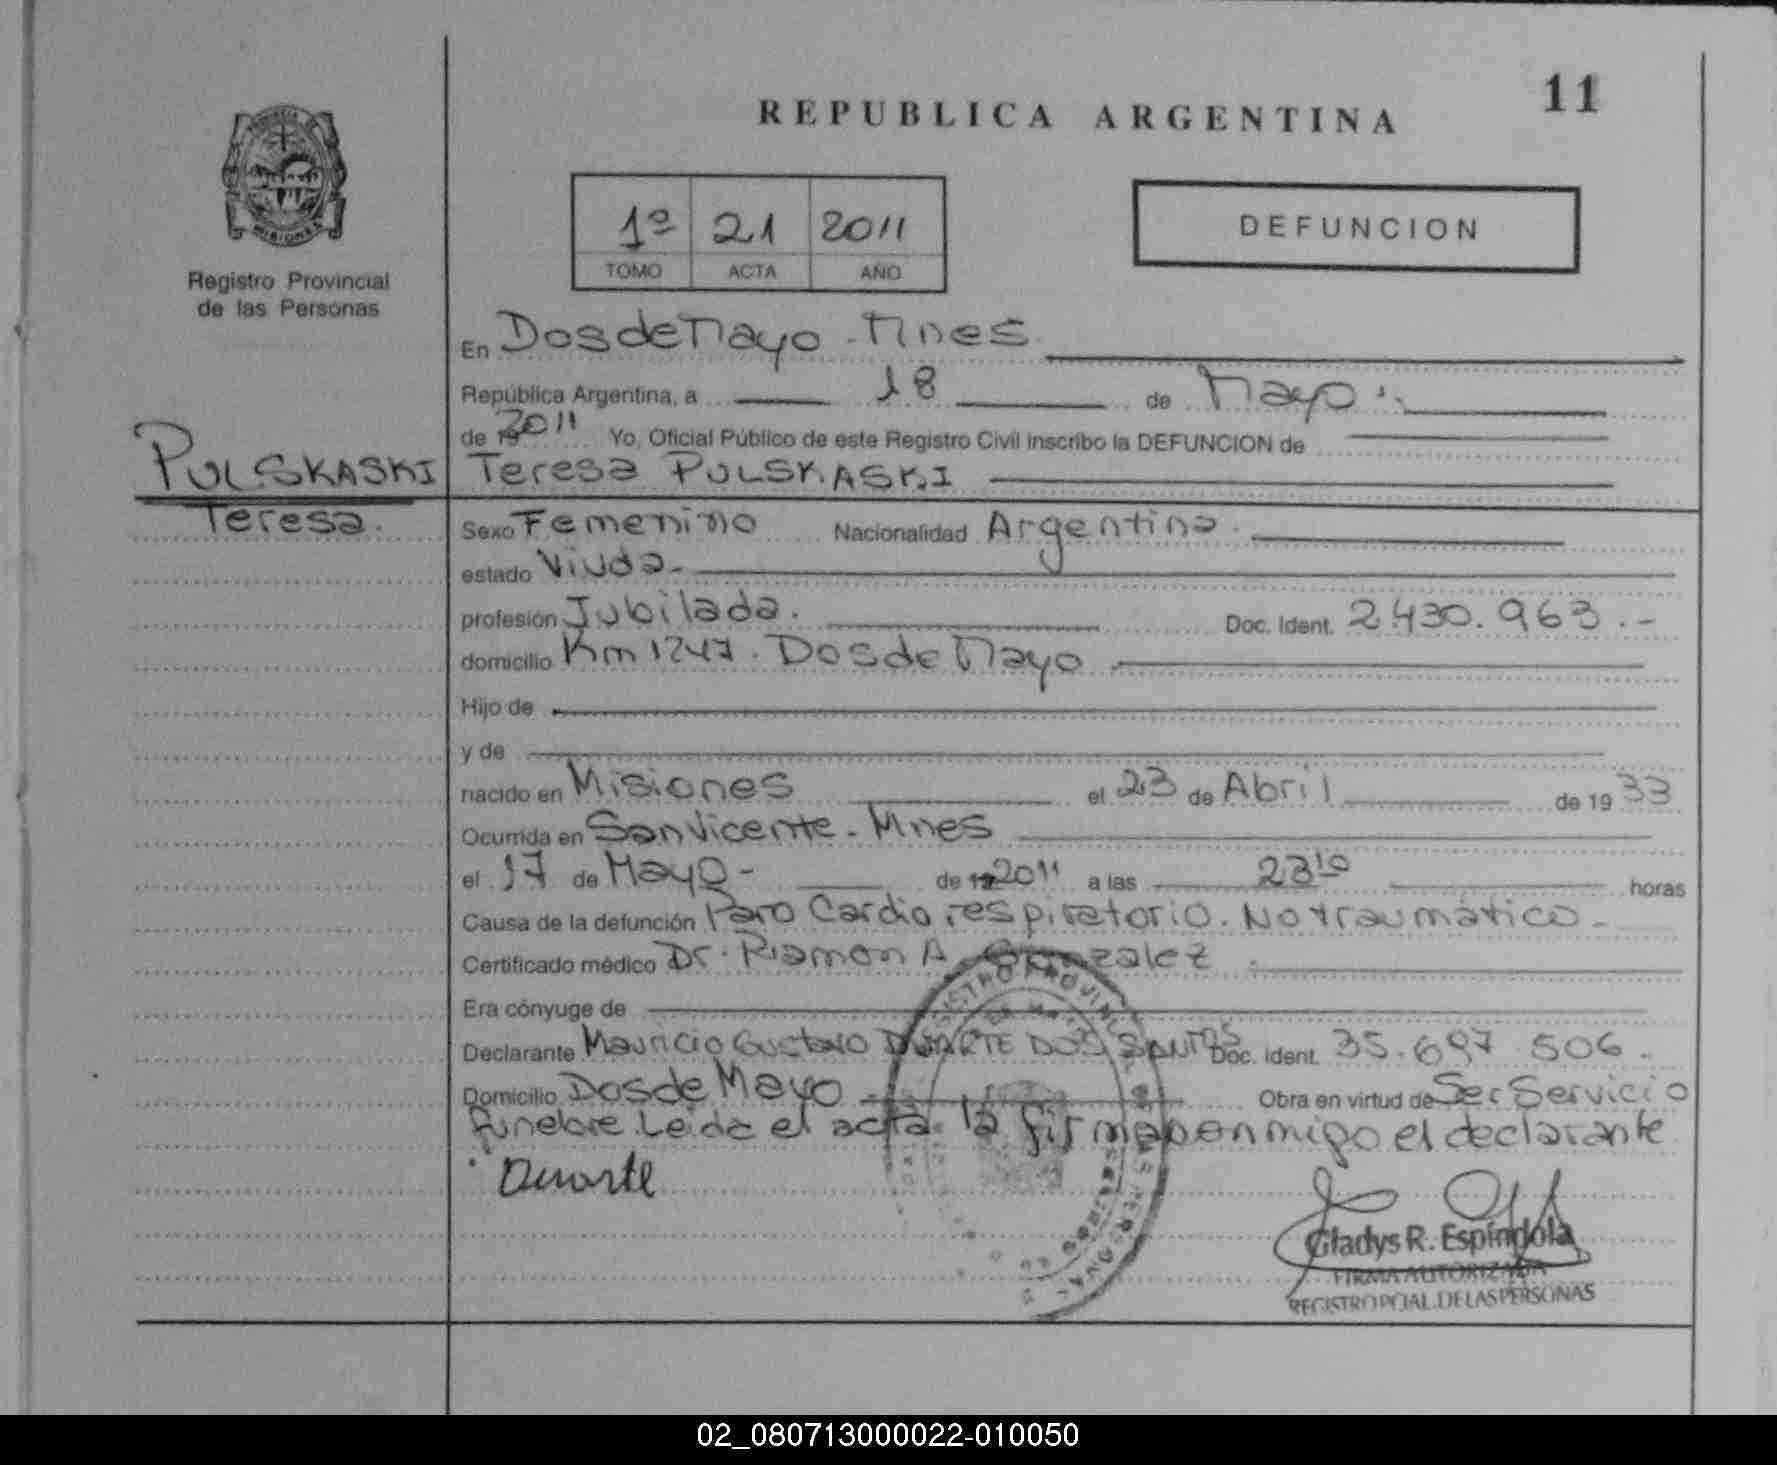 11
REPUBLICA ARGENTINA
1º 21 2011
TOMO ACTA AÑO
DEFUNCION
MISIONES
Registro Provincial
de las Personas
En Dos de Mayo - Mnes
República Argentina, a 18 de Mayo
de 19 2011 Yo, Oficial Público de este Registro Civil inscribo la DEFUNCION de
PULSKASKI Teresa PULSKASKI
Teresa. Sexo Femenino Nacionalidad Argentina.
estado Viuda-
profesión Jubilada. Doc. Ident. 2430.963.-
domicilio Km 1247. Dos de Mayo
Hijo de
y de
nacido en Misiones el 23 de Abril de 19 33
Ocurrida en San Vicente - Mnes
el 17 de Mayo - de 19 2011 a las 23 10 horas
Causa de la defunción Paro Cardio respiratorio. No traumático -
Certificado médico Dr. Ramon A Gonzalez
Era cónyuge de
Declarante Mauricio Gustavo DUARTE DOS SANTOS Doc. Ident. 35.697 506.
Domicilio Dos de Mayo Obra en virtud de Ser Servicio
funebre. Leida el acta la firma con migo el declarante
Duarte
Gladys R. Espíndola
FIRMA AUTORIZADA
REGISTRO PCIAL. DE LAS PERSONAS
02_080713000022-010050